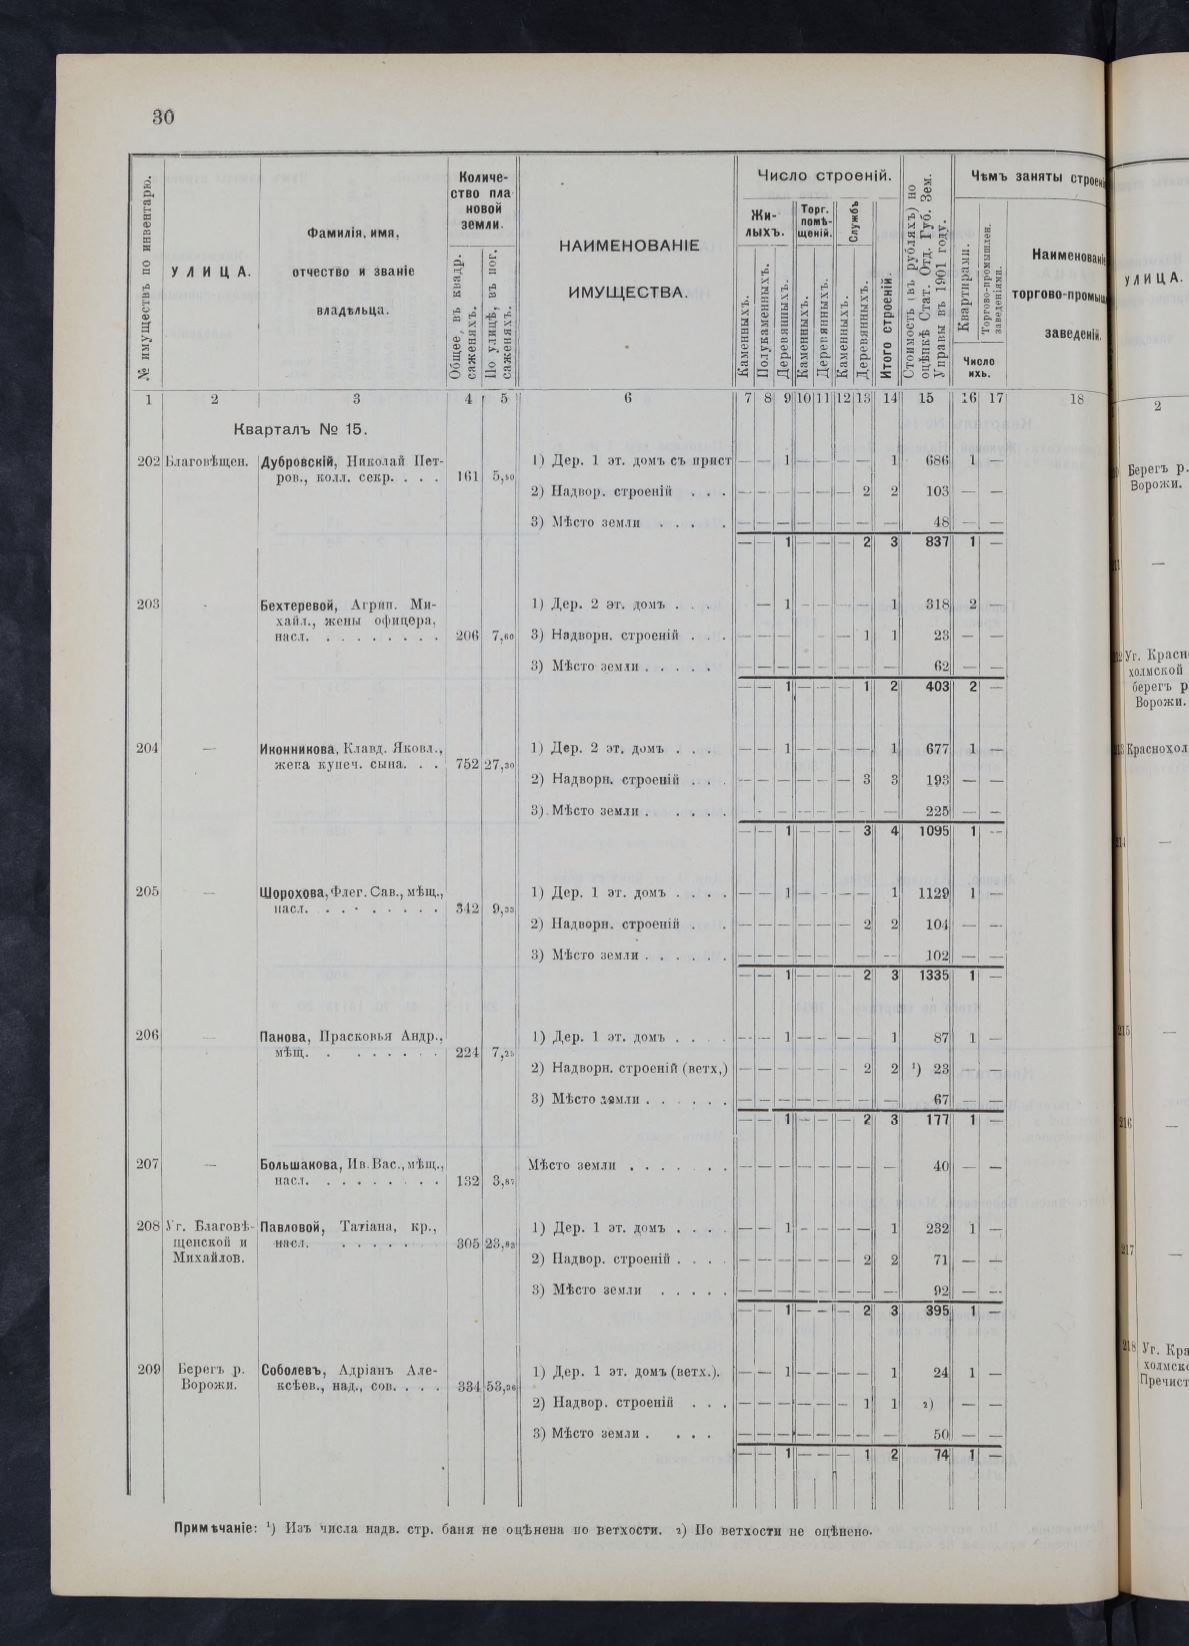 30
№ имуществъ по инвентарю.
УЛИЦА.
Фамилія, имя,
отчество и званіе
владѣльца.
Количе-
ство пла
новой
земли.
Общее, въ квадр.
саженяхъ.
По улицѣ, въ пог.
саженяхъ.
НАИМЕНОВАНІЕ
ИМУЩЕСТВА.
Число строеній.
Жи-
лыхъ.
Торг.
помѣ-
щеній.
Службъ
Каменныхъ.
Полукаменныхъ.
Деревянныхъ.
Каменныхъ.
Деревянныхъ.
Каменныхъ.
Деревянныхъ.
Итого строеній.
Стоимость (въ рубляхъ) по
оцѣнкѣ Стат. Отд. Губ. Зем.
Управы въ 1901 году.
Чѣмъ заняты строені
Квартирами.
Торгово-промышлен.
заведеніями.
Число
ихъ.
Наименованіе
торгово-промыш
заведеній.
1 2 3 4 5 6 7 8 9 10 11 12 13 14 15 16 17 18
Кварталъ № 15.
202 Благовѣщен. Дубровскій, Николай Пет- 1) Дер. 1 эт. домъ съ прист — — 1 — — — — 1 686 1 —
ров., колл. секр. . . . 161 5,50
2) Надвор. строеній . . . — — — — — — 2 2 103 — —
3) Мѣсто земли . . . . — — — — — — — — 48 — —
— — 1 — — — 2 3 837 1 —
203 - Бехтеревой, Агрип. Ми- 1) Дер. 2 эт. домъ . . . — 1 - - - - 1 318 2 —
хайл., жены офицера,
насл. . . . . . . . . 206 7,60 3) Надворн. строеній . . . — — — - — — 1 1 23 — —
3) Мѣсто земли . . . . . — — — — — — — — 62 — —
— — 1 — — — 1 2 403 2 —
204 — Иконникова, Клавд. Яковл., 1) Дер. 2 эт. домъ . . . — — 1 — — — — 1 677 1 —
жена купеч. сына. . . 752 27,30
2) Надворн. строеній . . . — — — — — — 3 3 193 — —
3) Мѣсто земли . . . . . . - — — — — — — 225 — —
— — 1 — — — 3 4 1095 1 —
205 — Шорохова, Флег. Сав., мѣщ., 1) Дер. 1 эт. домъ . . . . — — 1 — - — — 1 1129 1 —
насл. . . . . . . . . 342 9,33
2) Надворн. строеній . . — — — — — — 2 2 104 — —
3) Мѣсто земли . . . . . . — — — — — — — 102 — —
— — 1 — — — 2 3 1335 1 —
206 — Панова, Прасковья Андр., 1) Дер. 1 эт. домъ . . . . — — 1 — — — — 1 87 1 —
мѣщ. . . . . . . . 224 7,25
2) Надворн. строеній (ветх,) — — — — — - 2 2 ¹) 23 — —
3) Мѣсто земли . . . . . . — — — — — — — — 67 — —
— — 1 — — — 2 3 177 1 —
207 — Большакова, Ив. Вас., мѣщ., Мѣсто земли . . . . . . . — — — — — — — — 40 — —
насл. . . . . . . . . 132 3,87
208 Уг. Благовѣ- Павловой, Татіана, кр., 1) Дер. 1 эт. домъ . . . . — — 1 - — — — 1 232 1 —
щенской и насл. . . . . . 305 23,83
Михайлов. 2) Надвор. строеній . . . . — — — — — — 2 2 71 — —
3) Мѣсто земли . . . . . — — — — — — — — 92 — —
— — 1 — — — 2 3 395 1 —
209 Берегъ р. Соболевъ, Адріанъ Але- 1) Дер. 1 эт. домъ (ветх.). — — 1 — — — — 1 24 1 —
Ворожи. ксѣев., над., сов. . . . 334 53,36
2) Надвор. строеній . . . — — — — — — 1 1 ²) — —
3) Мѣсто земли . . . . — — — — — — — — 50 — —
— — 1 — — — 1 2 74 1 —
Примѣчаніе: ¹) Изъ числа надв. стр. баня не оцѣнена по ветхости. ²) По ветхости не оцѣнено.
УЛИЦА.
2
Берегъ р.
Ворожи.
—
Уг. Красн
холмской
берегъ р
Ворожи.
Краснохол
—
215 —
216 —
217 —
218 Уг. Кра
холмск
Пречист